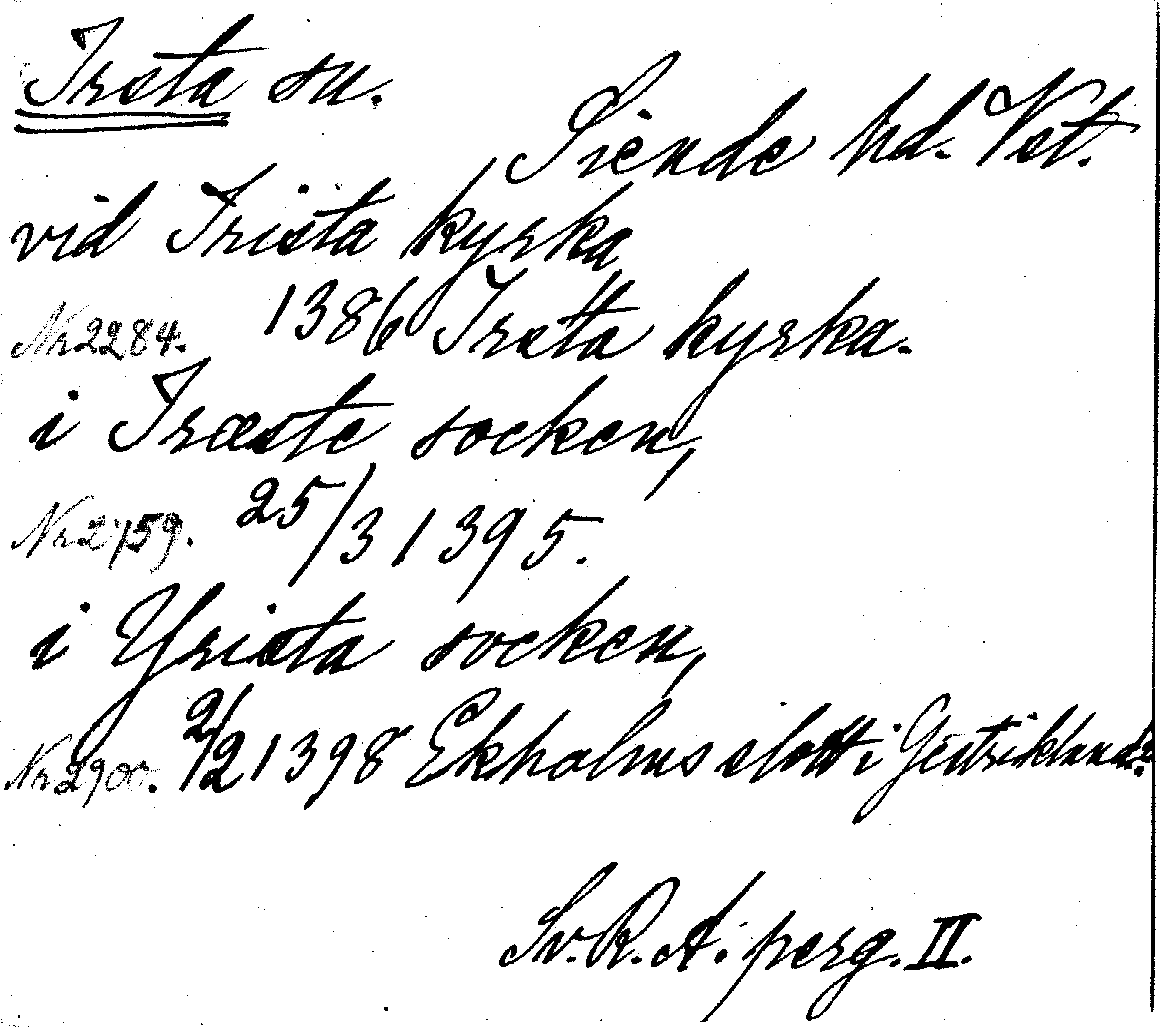 Irsta sn.
Siende hd. Vst.
vid Irista kyrka
Nr 2284. 1386 Irsta kyrka.
i Iræste socken,
Nr 2759. 25/3 1395.
i Yrista socken,
Nr 2900. 2/2 1398 Ekholms slott i Gestrikland.
Sv. R. A. perg. II.